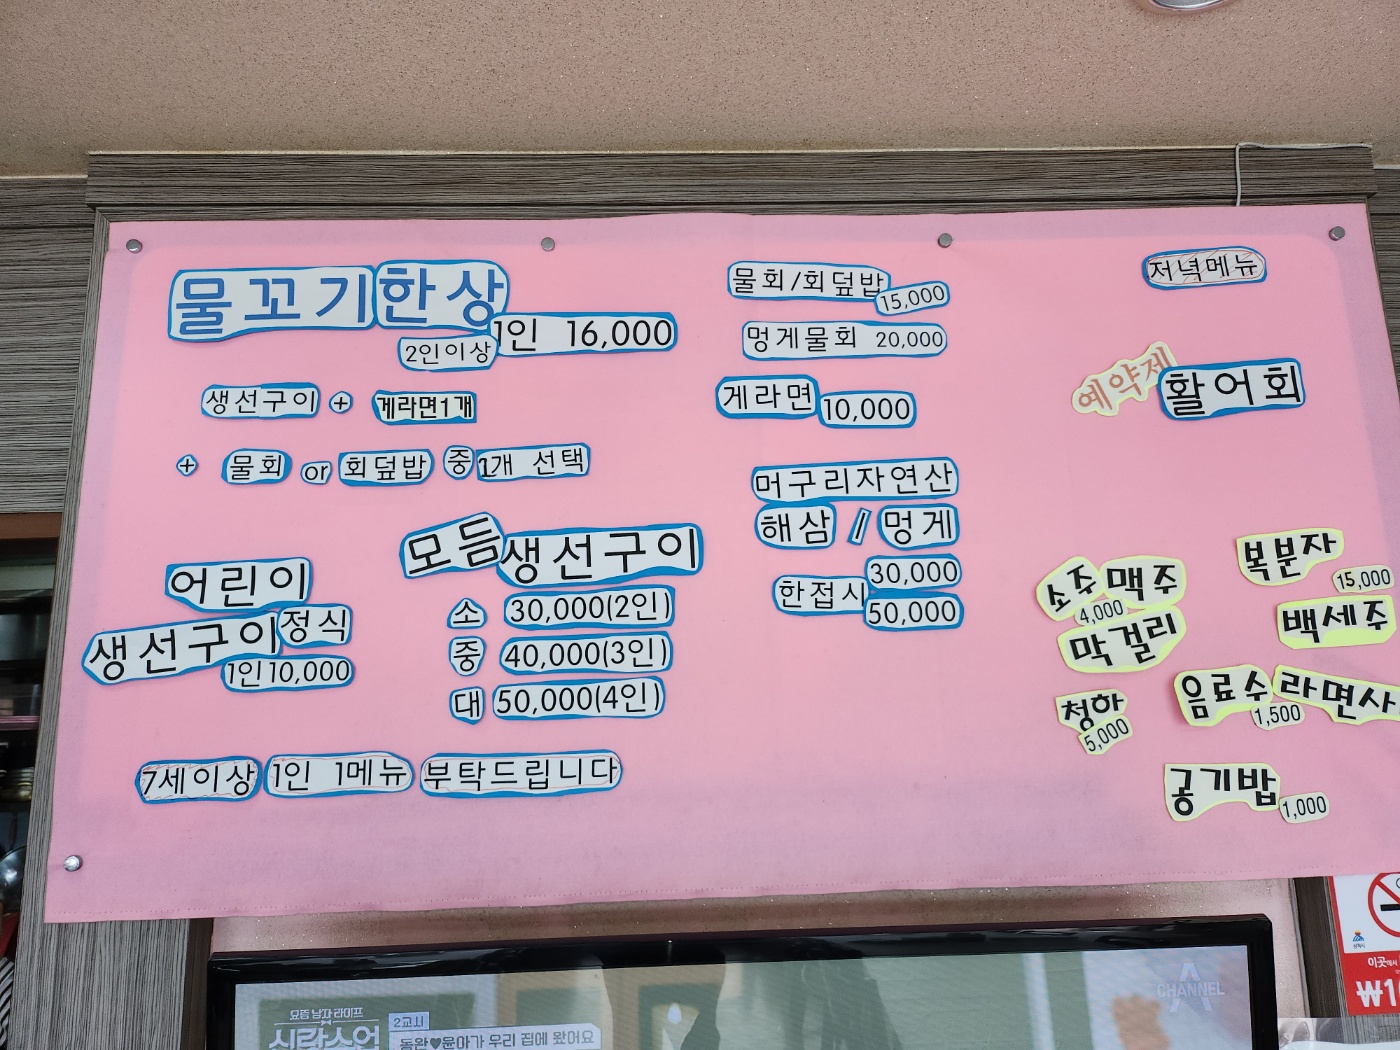 물꼬기한상
2인이상 1인 16,000
생선구이 + 게라면1개
+ 물회 or 회덮밥 중 1개 선택
모듬생선구이
소 30,000(2인)
중 40,000(3인)
대 50,000(4인)
어린이
생선구이정식
1인10,000
7세이상 1인 1메뉴 부탁드립니다
물회/회덮밥 15,000
멍게물회 20,000
게라면 10,000
머구리자연산
해삼 / 멍게
한접시 30,000
50,000
저녁메뉴
예약제 활어회
소주 맥주
4,000
막걸리
청하
5,000
복분자
15,000
백세주
음료수
1,500
라면사
공기밥
1,000
요즘 남자 라이프
신랑수업
2교시
동완♥윤아가 우리 집에 왔어요
CHANNEL A
이곳에서
₩1